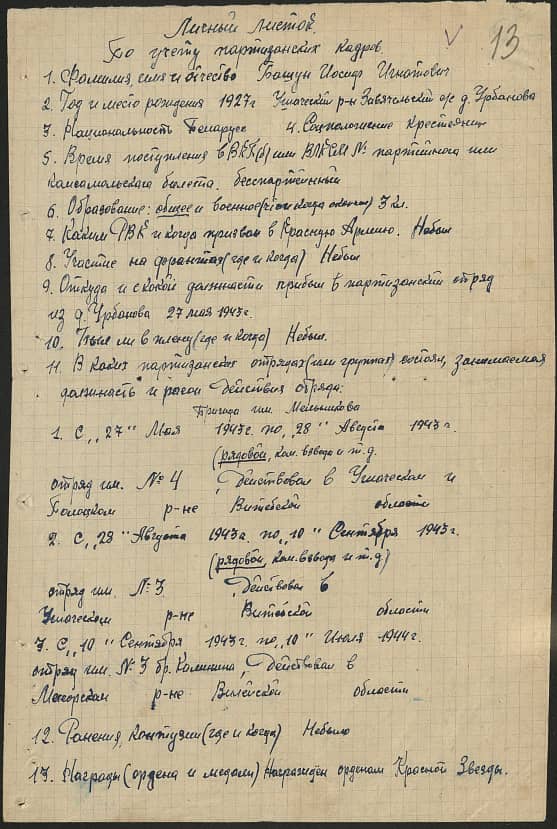 Личный Листок. 13
По учету партизанских кадров
1. Фамилия, имя и отчество Башун Иосиф Игнатович
2. Год и место рождения 1927г Ушачский р-н Завячельский с/с д. Урбанова
3. Национальность Беларус 4. Соцположение Крестьянин
5. Время поступления в ВКП(б) или ВЛКСМ № партийного или
комсомольского билета. беспартийный
6. Образование: общее и военное (что и когда окончил) 3 кл.
7. Каким РВК и когда призван в Красную Армию. Небыл
8. Участие на фронтах (где и когда) Небыл
9. Откуда и с какой должности прибыл в партизанский отряд
из д. Урбанова 27 мая 1943г.
10. Был ли в плену (где и когда) Небыл.
11. В каких партизанских отрядах (или группах) состоял, занимаемая
должность и район действия отряда:
Бригада им. Мельникова
1. С „27" Мая 1943г. по „28" Августа 1943г.
(рядовой, ком. взвода и т.д.
отряд им. № 4 Действовал в Ушачском и
Полоцком р-не Витебской области
2. С „28" Августа 1943г. по „10" Сентября 1943г.
(рядовой, ком. взвода и т.д)
отряд им. № 3 Действовал в
Ушачском р-не Витебской области
3. С „10" Сентября 1943г. по „10" Июля 1944г.
отряд им. № 3 бр. Калинина, Действовал в
р-не Вилейской области
12. Ранения, Контузии (где и когда) Небыло
13. Награды (ордена и медали) Награжден орденом Красной Звезды.